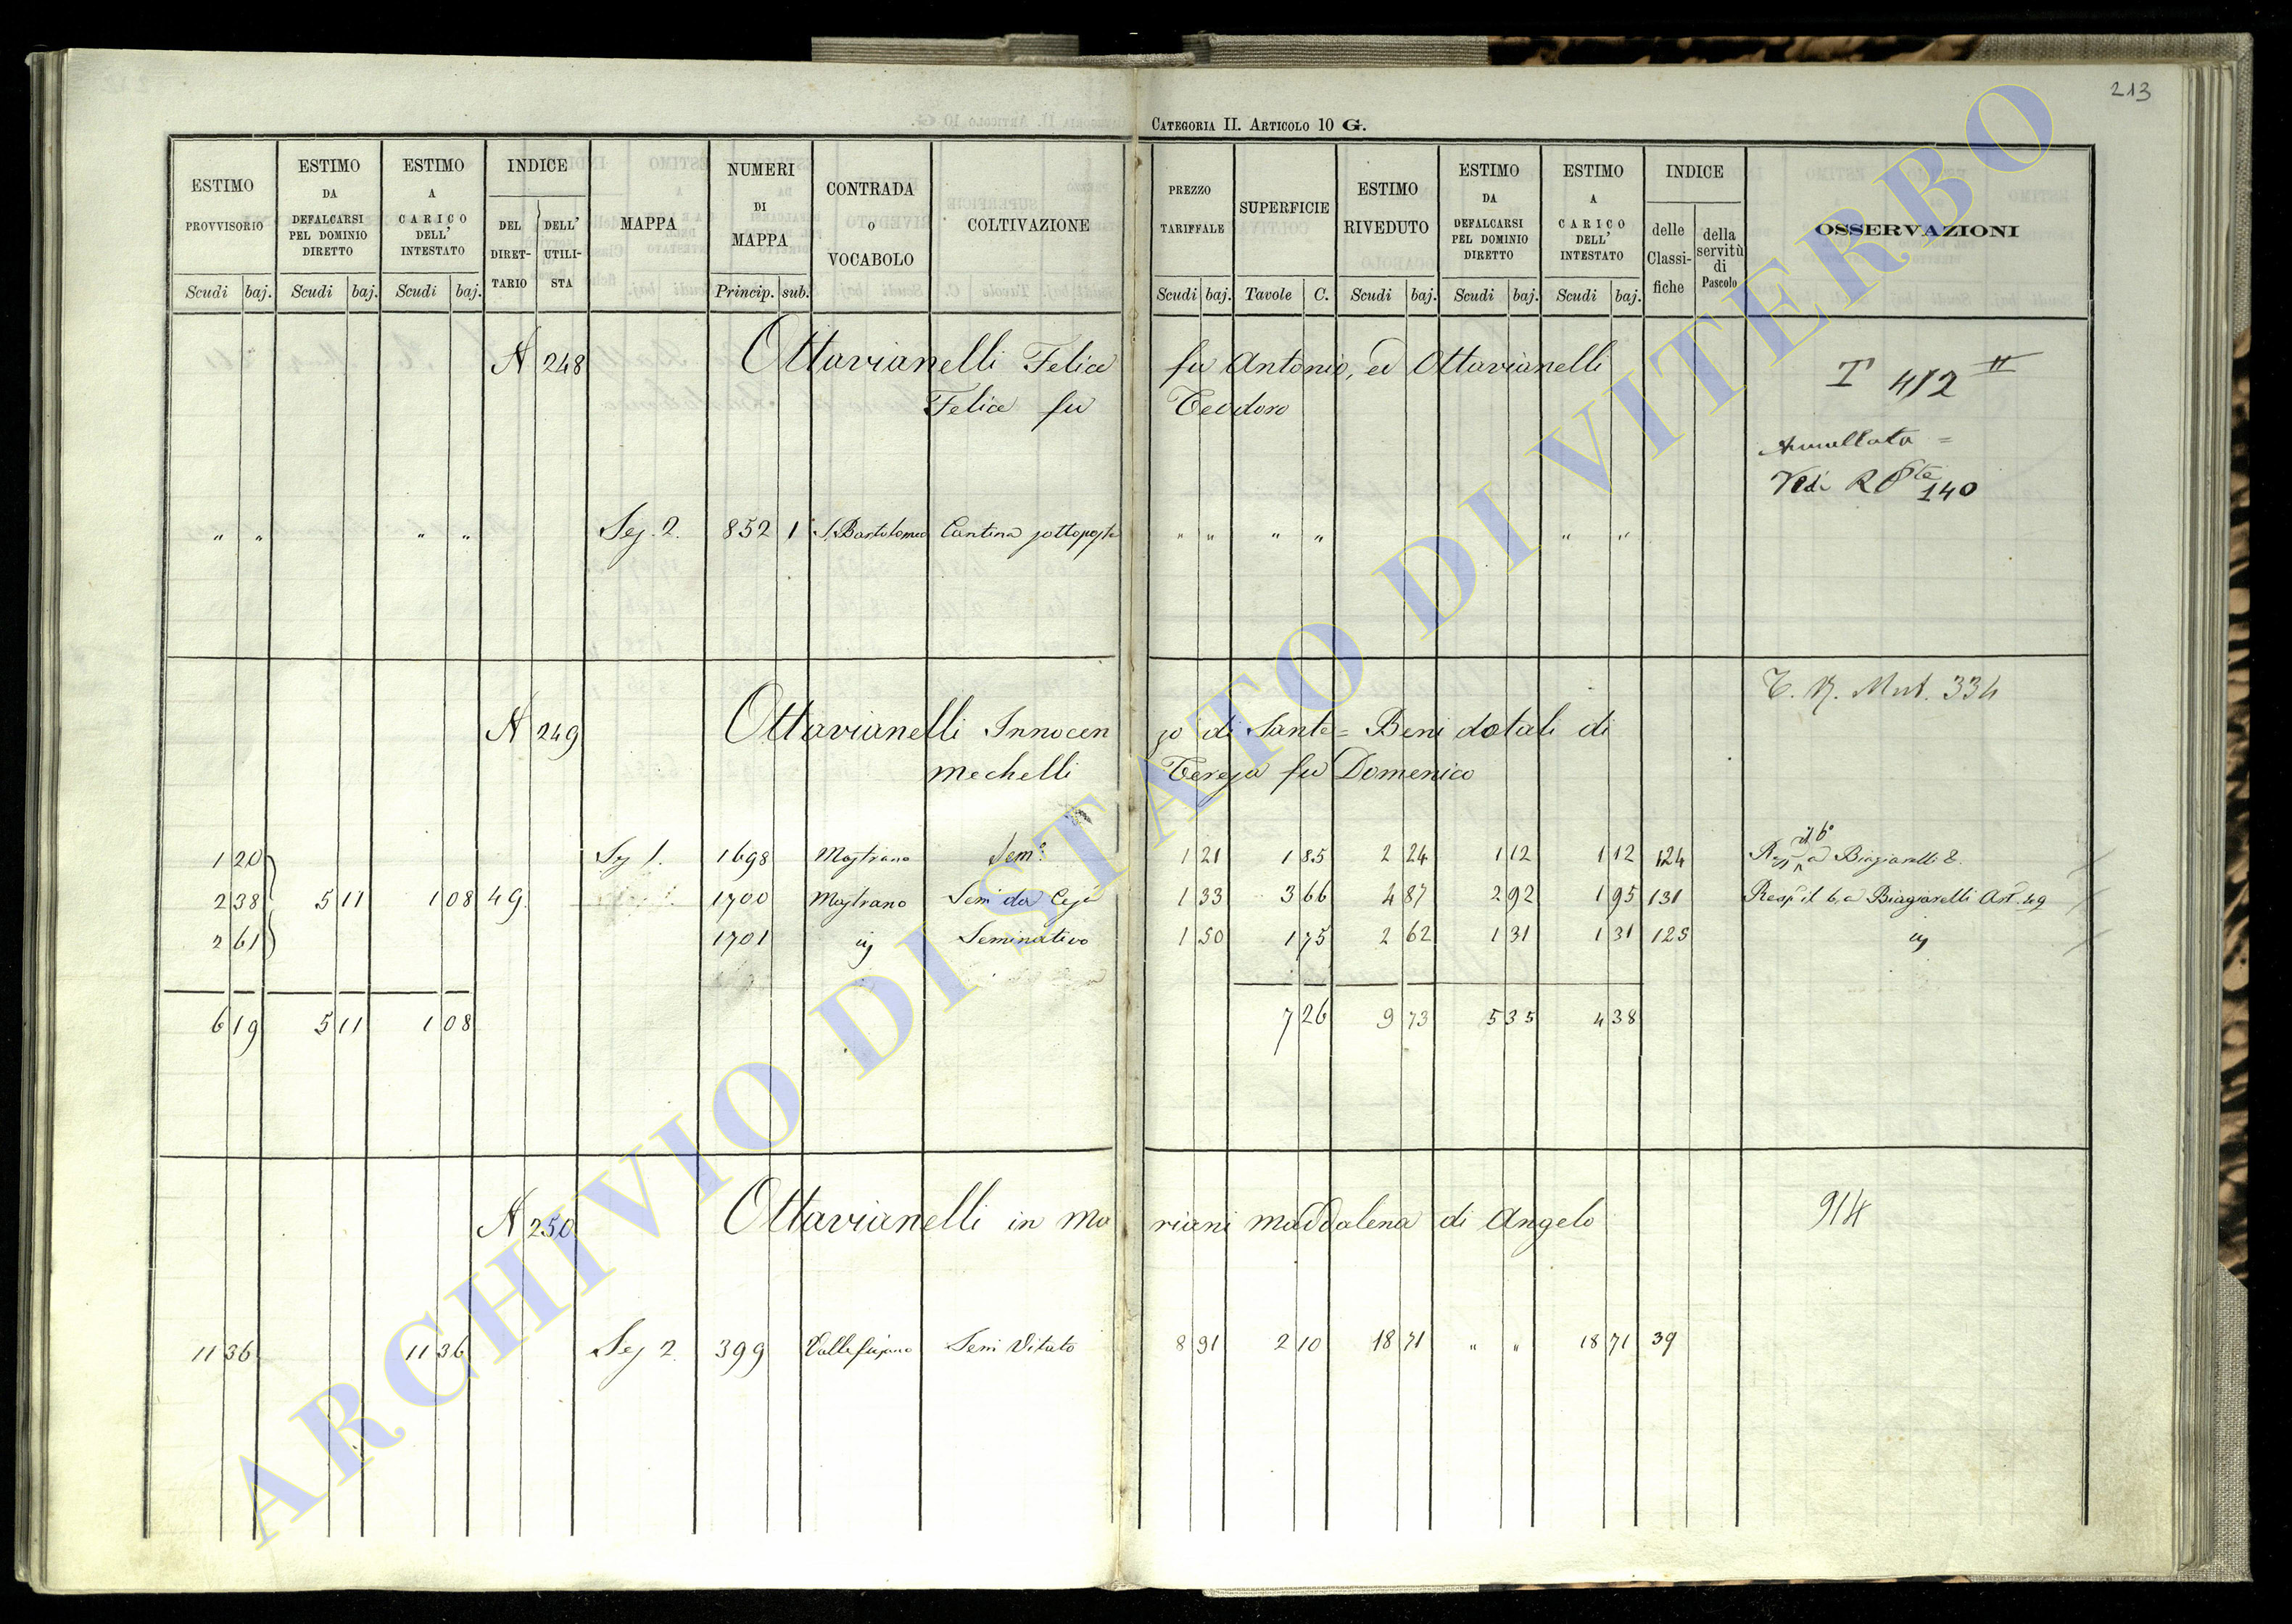 213
CATEGORIA II. ARTICOLO 10 G.
ESTIMO PROVVISORIO Scudi baj. ESTIMO DA DEFALCARSI PEL DOMINIO DIRETTO Scudi baj. ESTIMO A CARICO DELL' INTESTATO Scudi baj. INDICE DEL DIRETTARIO DELL' UTILISTA MAPPA NUMERI DI MAPPA Princip. sub. CONTRADA O VOCABOLO COLTIVAZIONE PREZZO TARIFFALE Scudi baj. SUPERFICIE Tavole C. ESTIMO RIVEDUTO Scudi baj. ESTIMO DA DEFALCARSI PEL DOMINIO DIRETTO Scudi baj. ESTIMO A CARICO DELL' INTESTATO Scudi baj. INDICE delle Classifiche della servitù di Pascolo OSSERVAZIONI
N 248 Ottavianelli Felice fu Antonio, ed Ottavianelli T 412 II
Felice fu Teodoro
Annullata =
Vedi R 140
" " " " Sez. 2. 852 1 S. Bartolomeo Cantina sottoposta " " " " " "
T. N. Mut. 334
N 249 Ottavianelli Innocenzo di Sante = Beni dotali di
Mechelli Teresa fu Domenico
1 20 Sez 1. 1698 Mostrano Sem.o 1 21 1 85 2 24 1 12 1 12 124 il 6° a Biagiarelli
2 38 5 11 1 08 49 1700 Mostrano Sem da 1 33 3 66 4 87 2 92 1 95 131 Resp il 6, a Biagiarelli Art. 49
2 61 1701 Seminativo 1 50 1 75 2 62 1 31 1 31 125
6 19 5 11 1 08 7 26 9 73 5 35 4 38
N 250 Ottavianelli in Mariani Maddalena di Angelo 914
11 36 11 36 Sez 2. 399 Sem Vitato 8 91 2 10 18 71 " " 18 71 39
ARCHIVIO DI STATO DI VITERBO